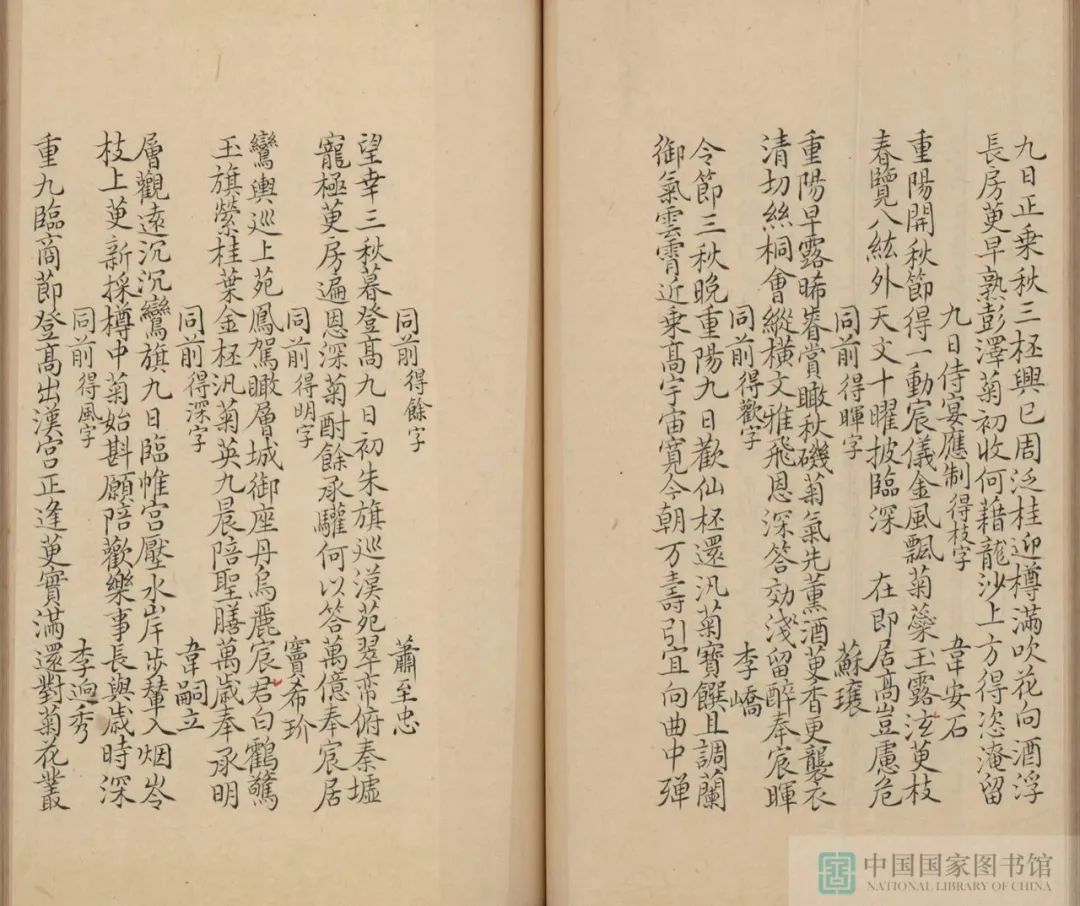 九日正乗秋三柸興已周泛桂迎樽滿吹花向酒浮
長房茰早熟彭澤菊初收何藉龍沙上方得恣淹留
九日侍宴應制得枝字　韋安石
重陽開秋節得一動宸儀金風飄菊蘂玉露泫茰枝
春覽八紘外天文十曜披臨深　在即居髙豈慮危
同前得暉字　蘇瓌
重陽早露晞睿賞瞰秋磯菊氣先薰酒茰香更襲衣
清切絲桐會縱橫文雅飛恩深答効淺留醉奉宸暉
同前得歡字　李嶠
令節三秋晚重陽九日歡仙柸還汎菊寶饌且調蘭
御氣雲霄近乗髙宇宙寛今朝万壽引宜向曲中殫
同前得餘字　蕭至忠
望幸三秋暮登髙九日初朱旗巡漢苑翠帟俯秦墟
寵極茰房遍恩深菊酎餘承驩何以答萬億奉宸居
同前得明字　竇希玠
鸞輿巡上苑鳳駕瞰層城御座丹烏麗宸君白鶴驚
玉旗縈桂葉金柸汎菊英九晨陪聖膳萬歲奉承明
同前得深字　韋嗣立
層觀遠沉沉鸞旗九日臨帷宮壓水岸步輦入烟岺
枝上茰新採樽中菊始斟願陪歡樂事長與歲時深
同前得風字　李迥秀
重九臨商節登髙出漢宮正逢茰實滿還對菊花叢
中国国家图书馆
NATIONAL LIBRARY OF CHINA